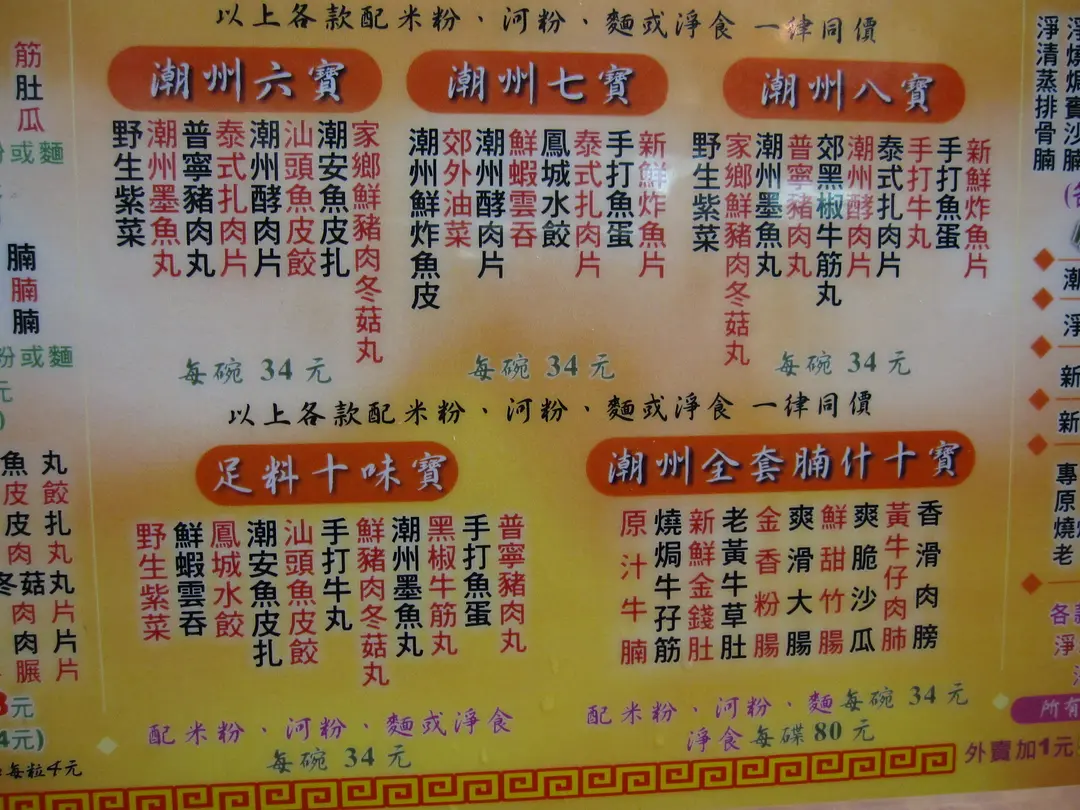 以上各款配米粉、河粉、麵或淨食 一律同價
潮州六寶
家鄉鮮豬肉冬菇丸
潮安魚皮扎
汕頭魚皮餃
潮州酵肉片
泰式扎肉片
普寧豬肉丸
潮州墨魚丸
野生紫菜
每碗 34 元
潮州七寶
新鮮炸魚片
手打魚蛋
泰式扎肉片
鳳城水餃
鮮蝦雲吞
潮州酵肉片
郊外油菜
潮州鮮炸魚皮
每碗 34 元
潮州八寶
新鮮炸魚片
手打魚蛋
手打牛丸
泰式扎肉片
潮州酵肉片
郊黑椒牛筋丸
普寧豬肉丸
潮州墨魚丸
家鄉鮮豬肉冬菇丸
野生紫菜
每碗 34 元
以上各款配米粉、河粉、麵或淨食 一律同價
足料十味寶
普寧豬肉丸
手打魚蛋
黑椒牛筋丸
潮州墨魚丸
鮮豬肉冬菇丸
手打牛丸
汕頭魚皮餃
潮安魚皮扎
鳳城水餃
鮮蝦雲吞
野生紫菜
配米粉、河粉、麵或淨食
每碗 34 元
潮州全套腩什十寶
香滑肉膀
黃牛仔肉肺
爽脆沙瓜
鮮甜竹腸
爽滑大腸
金香粉腸
老黃牛草肚
新鮮金錢肚
燒焗牛孖筋
原汁牛腩
配米粉、河粉、麵每碗 34 元
淨食每碟 80 元
外賣加1元
筋
肚
瓜
或麵
腩
腩
腩
粉或麵
元
魚丸
皮餃
皮扎
肉丸
冬菇丸
肉片
肉片
片
元
4元)
每粒4元
淨清蒸排骨腩
所有